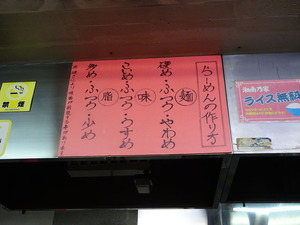 らーめんの作り方
麺
硬め・ふつう・やわめ
味
こいめ・ふつう・うすめ
脂
多め・ふつう・少め
禁煙
ライス無料